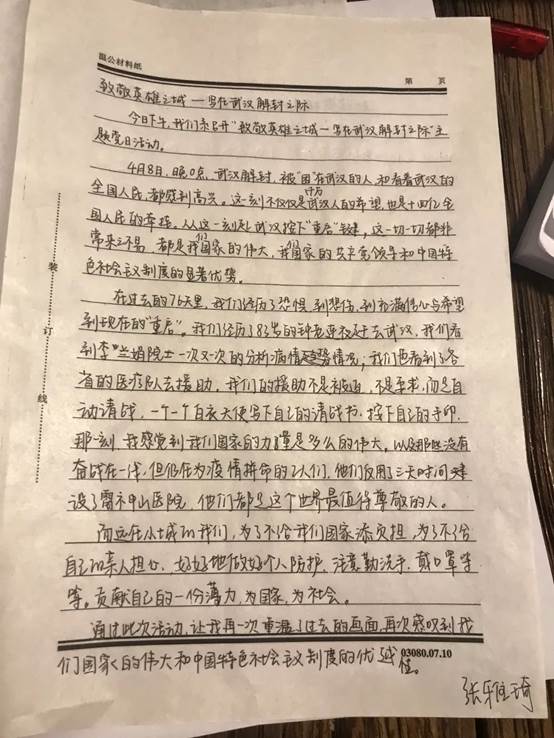 温公材料纸
第 页
致敬英雄之城—写在武汉解封之际
今日下午,我们系召开"致敬英雄之城—写在武汉解封之际"主
题党日活动。
4月8日,晚0点,武汉解封,被"困"在武汉的人,和看着武汉的
全国人民,都感到高兴。这一刻不仅仅是武汉人的希望,也是十四亿全
千万
国人民的牵挂。从这一刻起武汉按下"重启"键,这一切一切都非
常来之不易,都是我们国家的伟大,我们国家的共产党领导和中国特
色社会主义制度的显著优势。
在过去的76天里,我们经历了恐惧,到悲伤,到充满信心与希望
到现在的"重启"。我们经历了83岁的钟老再次赶去武汉,我们看
到李兰娟院士一次又一次的分析病情情况,我们也看到了各
省的医疗队去援助,我们的援助不是被迫,不是要求,而是自
动请战,一个一个白衣天使写下自己的请战书,按下自己的手印,
那一刻,我感觉到我们国家的力量是多么的伟大,以及那些没有
奋战在一线,但仍在为疫情拼命的工人们,他们仅用了三天时间建
设了雷神山医院,他们都是这个世界最值得尊敬的人。
而远在小城的我们,为了不给我们国家添负担,为了不给
自己的亲人担心,好好地做好个人防护,注意勤洗手,戴口罩等
等。贡献自己的一份薄力,为国家,为社会。
通过此次活动,让我再一次重温了过去的画面,再次感叹到我
们国家的伟大和中国特色社会主义制度的优越性。
03080.07.10
装
订
线
张雅琦